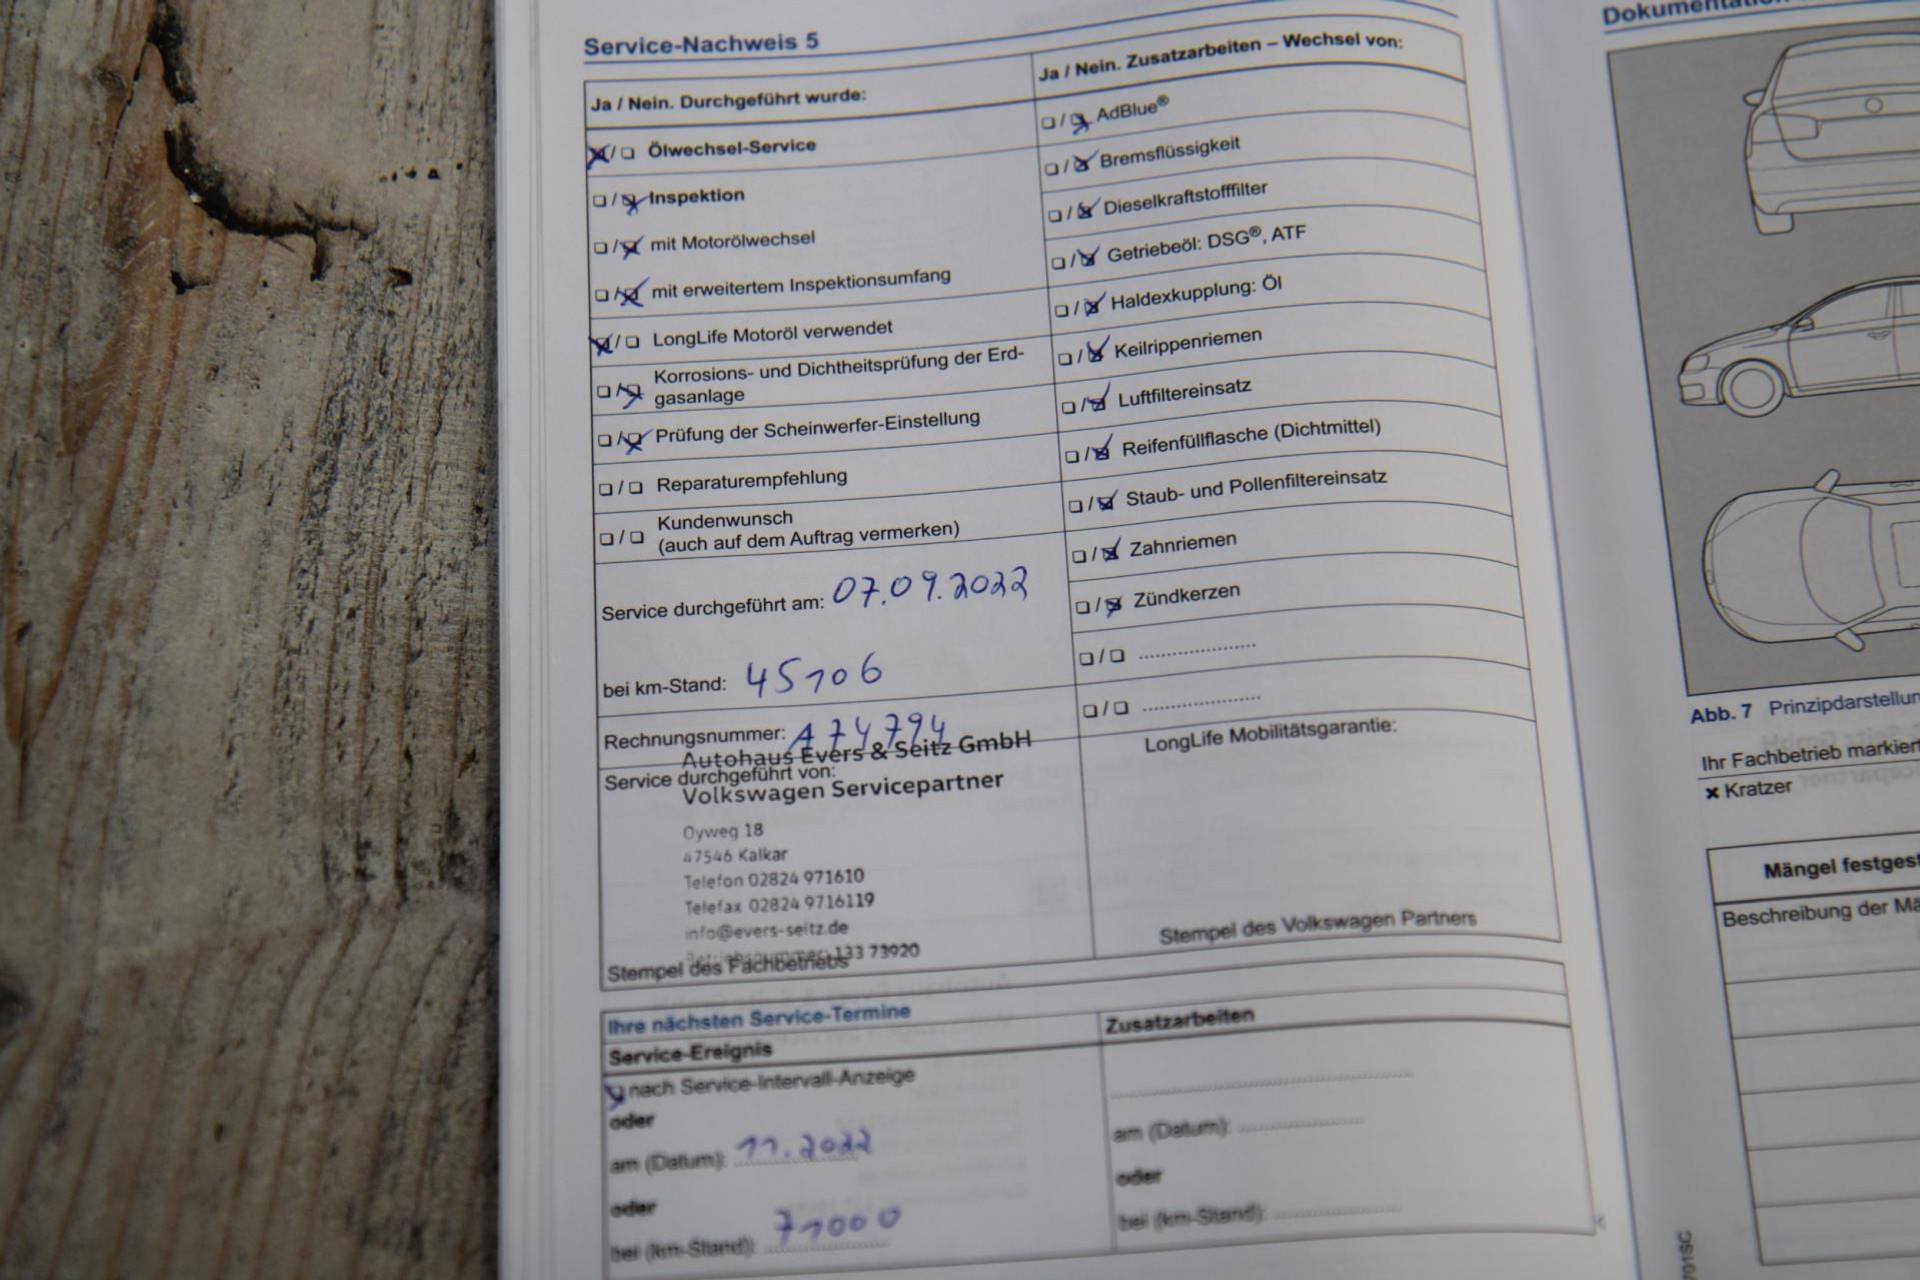 Service-Nachweis 5
Ja / Nein. Durchgeführt wurde:
☒/☐ Ölwechsel-Service
☐/☒ Inspektion
☐/☒ mit Motorölwechsel
☐/☒ mit erweitertem Inspektionsumfang
☒/☐ LongLife Motoröl verwendet
☐/☒ Korrosions- und Dichtheitsprüfung der Erd-
gasanlage
☐/☒ Prüfung der Scheinwerfer-Einstellung
☐/☐ Reparaturempfehlung
☐/☐ Kundenwunsch
(auch auf dem Auftrag vermerken)
Service durchgeführt am: 07.09.2022
bei km-Stand: 45106
Rechnungsnummer: A74794
Autohaus Evers & Seitz GmbH
Service durchgeführt von:
Volkswagen Servicepartner
Oyweg 18
47546 Kalkar
Telefon 02824 971610
Telefax 02824 9716119
info@evers-seitz.de
Betriebsnummer: 133 73920
Stempel des Fachbetriebs
Ja / Nein. Zusatzarbeiten – Wechsel von:
☐/☒ AdBlue®
☐/☒ Bremsflüssigkeit
☐/☒ Dieselkraftstofffilter
☐/☒ Getriebeöl: DSG®, ATF
☐/☒ Haldexkupplung: Öl
☐/☒ Keilrippenriemen
☐/☒ Luftfiltereinsatz
☐/☒ Reifenfüllflasche (Dichtmittel)
☐/☒ Staub- und Pollenfiltereinsatz
☐/☒ Zahnriemen
☐/☒ Zündkerzen
☐/☐ ....................
☐/☐ ....................
LongLife Mobilitätsgarantie:
Stempel des Volkswagen Partners
Ihre nächsten Service-Termine
Service-Ereignis
☒ nach Service-Intervall-Anzeige
oder
am (Datum): 11.2022
oder
bei (km-Stand): 71000
Zusatzarbeiten
am (Datum): ....................
oder
bei (km-Stand): ....................
Dokumentation
Abb. 7 Prinzipdarstellun
Ihr Fachbetrieb markiert
✖ Kratzer
Mängel festgest
Beschreibung der Mä
701SC